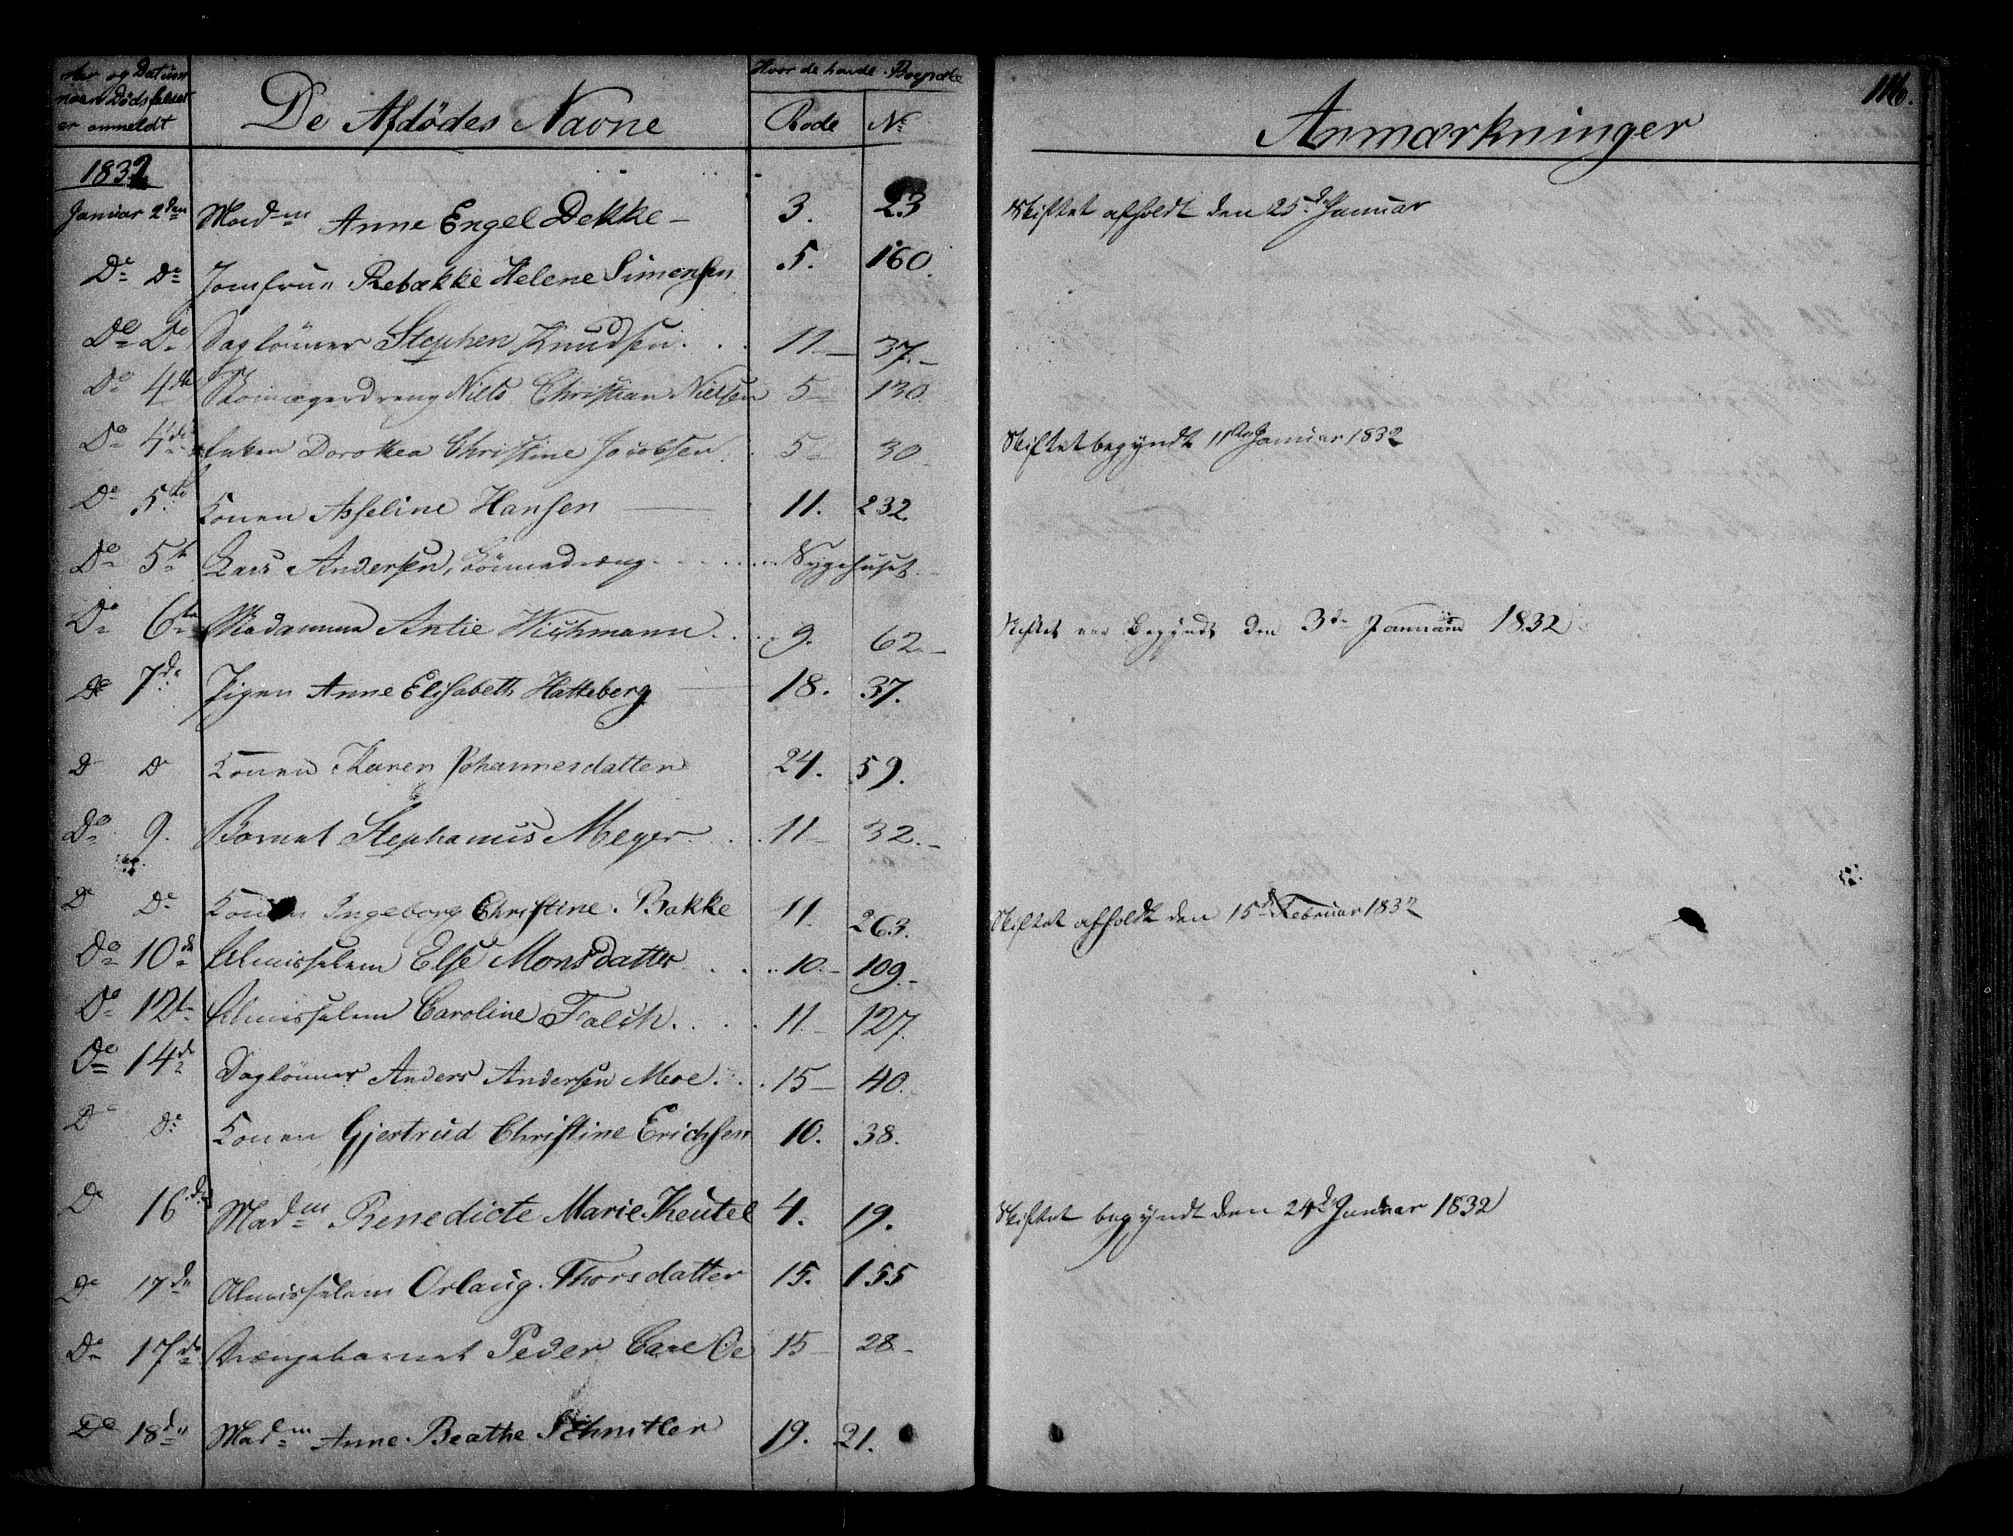 Aar og Datum
naar Dødsfaldet
er anmeldt
De Afdødes Navne
Hvor de havde Bopæle
Rode No
Anmærkninger
116.
1832
Januar 2den Madm Anne Engel Dekke - 3. 23 Skiftet afholdt den 25de Januar
Do Do Jomfrue Rebække Helene Simonsen 5. 160.
Do Do Daglønner Stephen Knudsen. 11 37.
Do 4de Skomagerdreng Nils Christian Nielsen 5 130.
Do 4de Enken Dorothea Christine Jacobsen 5 30 Skiftet begyndt 11te Januar 1832
Do 5te Konen Asseline Hansen 11. 232.
Do 5te Lars Andersen, Sygehuset
Do 6te Madamme Antie Wichmann 9. 62 Skiftet begyndt den 3de Januar 1832
Do 7de Pigen Anne Elisabeth Hatteberg 18. 37.
D D Konen Karen Johannesdatter 24. 59.
Do 9. Barnet Stephanus Meyer 11 32.
Do Do Konen Ingeborg Christine Bakke 11. 263. Skiftet afholdt den 15de Februar 1832
Do 10de Almisselem Else Monsdatter 10. 109.
Do 12te Almisselem Caroline Falch. 11. 127.
Do 14de Daglønner Anders Andersen Moe. 15 40.
D Do Konen Gjertrud Christine Erichsen 10. 38.
Do 16de Madm Benedicte Marie Keutel 4. 19. Skiftet begyndt den 24de Januar 1832
Do 17de Almisselem Orlaug Thorsdatter 15. 155
Do 17de Drengebarnet Peder 15 28
Do 18de Madm Anne Beathe Schnitler 19. 21.